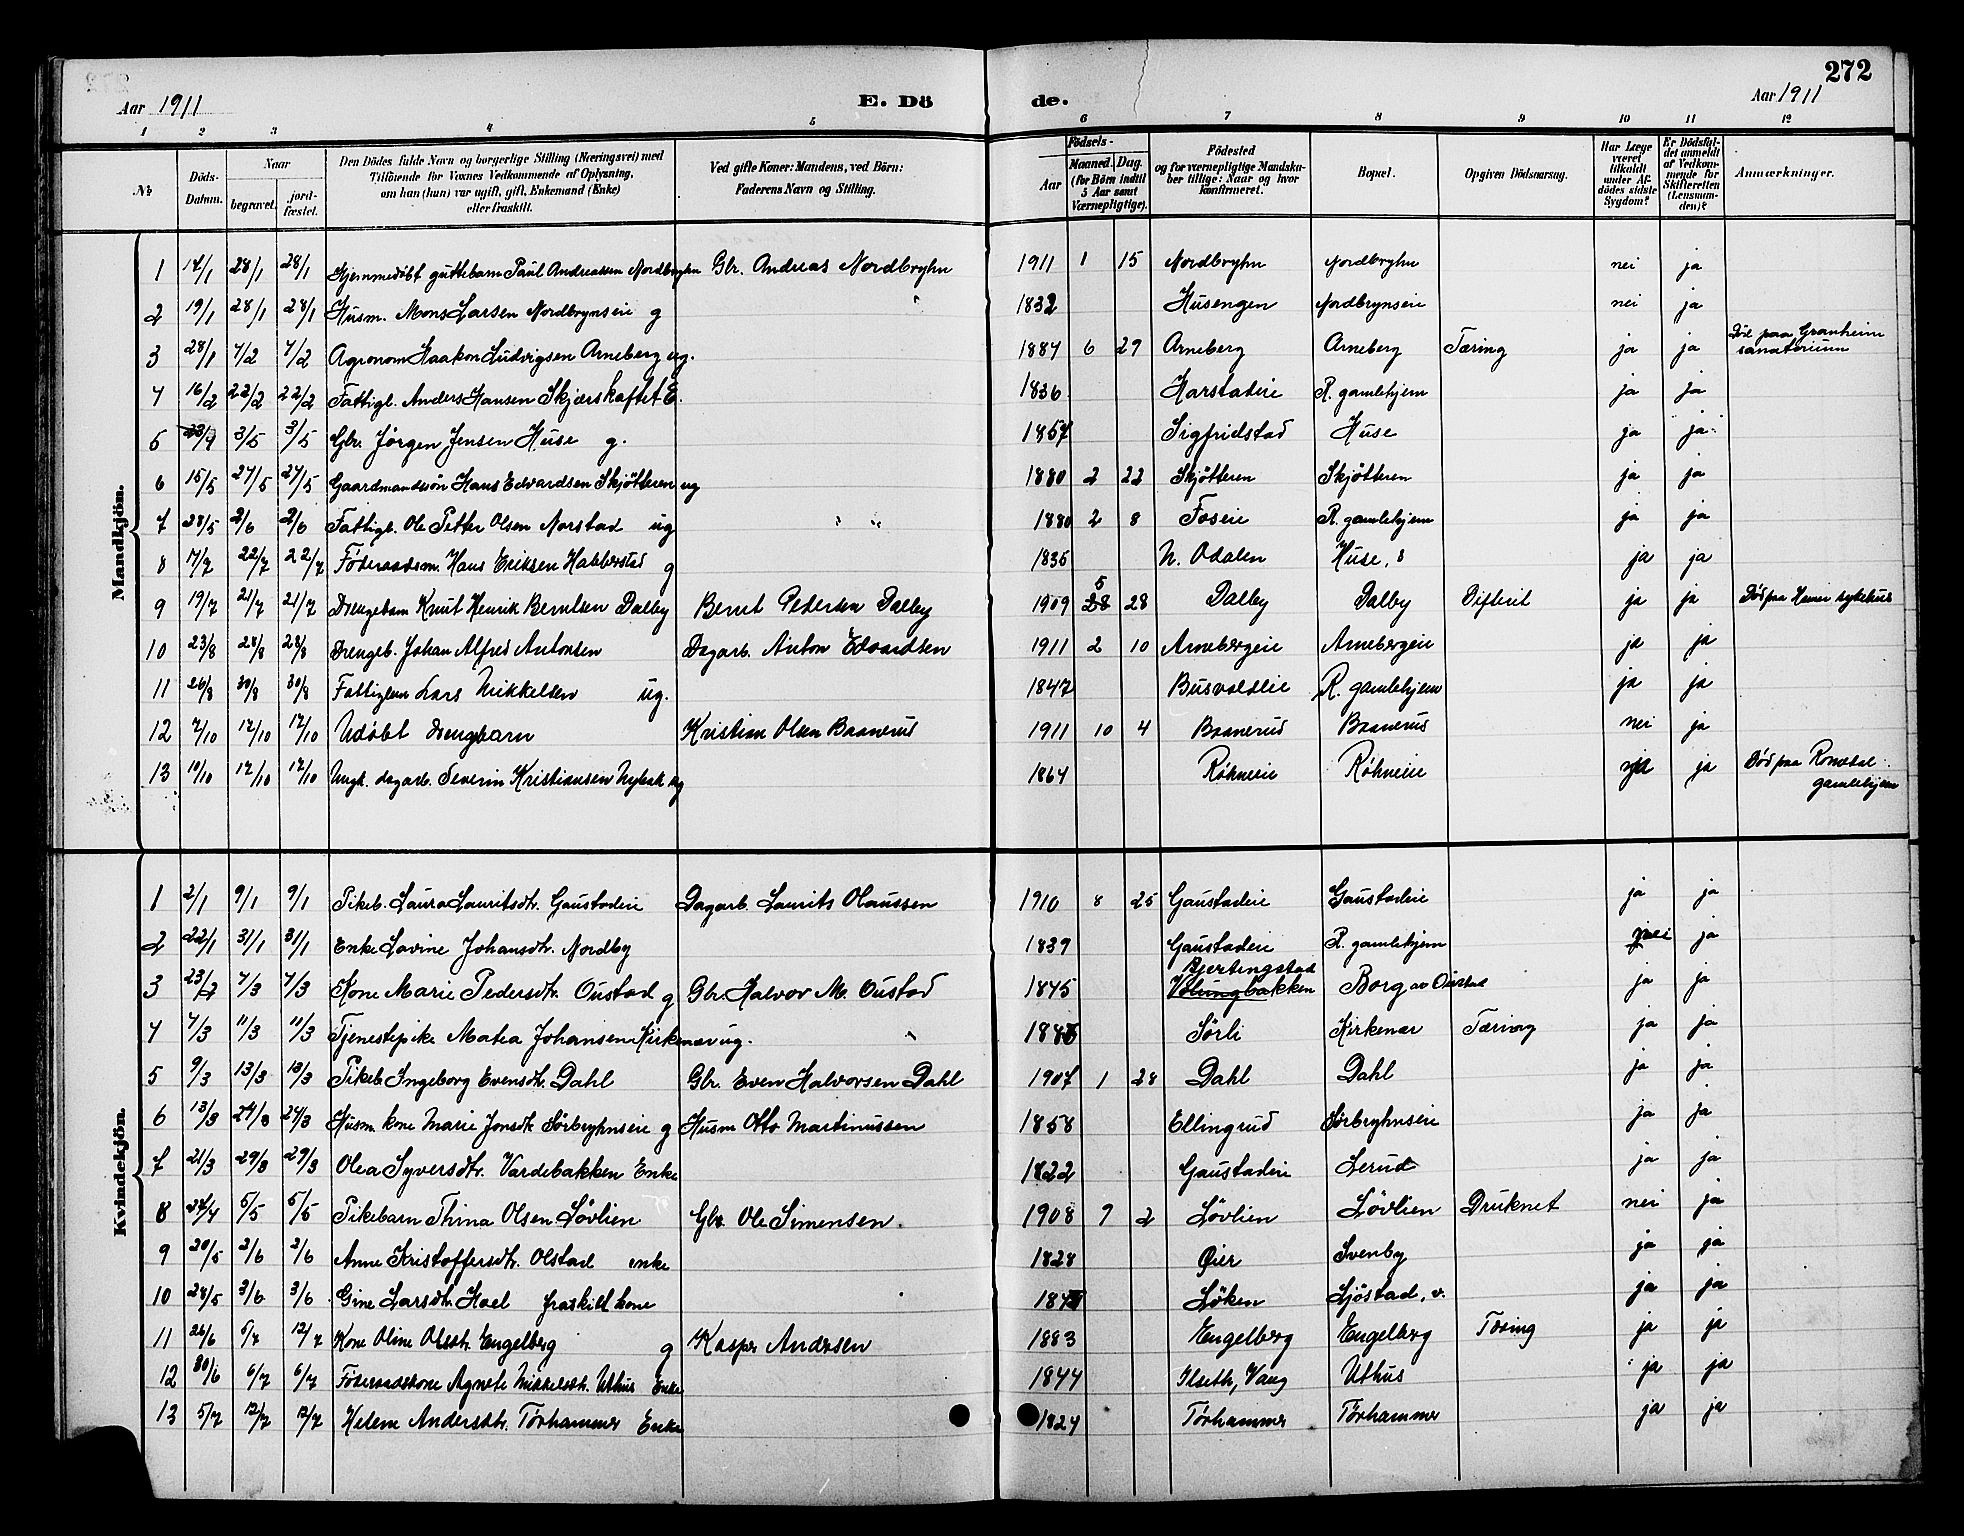 272
Aar 1911 E. Dö de. Aar 1911
1 2 3 4 5 6 7 8 9 10 11 12
No Döds-Datum. Naar begravet. jord-fæstet. Den Dödes fulde Navn og borgerlige Stilling (Næringsvei) med Tilföiende for Voxnes Vedkommende af Oplysning, om han (hun) var ugift, gift, Enkemand (Enke) eller fraskilt. Ved gifte Koner: Mandens, ved Börn: Faderens Navn og Stilling. Födsels- Aar Maaned. Dag. (for Børn indtil 5 Aar samt Værnepligtige). Födested og for værnepligtige Mandskaber tillige: Naar og hvor konfirmeret. Bopæl. Opgiven Dödsaarsag. Har Læge været tilkaldt under Afdödes sidste Sygdom? Er Dödsfaldet anmeldt af Vedkommende for Skifteretten (Lensmanden)? Anmærkninger.
Mandkjön.
1 14/1 28/1 28/1 Hjemmedöbt guttebarn Paul Andreassen Nordbryhn Gbr. Andreas Nordbryhn 1911 1 15 Nordbryhn Nordbryhn nei ja
2 19/1 28/1 28/1 Husm. Mons Larsen Nordbrynseie g 1832 Husengen Nordbrynseie nei ja
3 28/1 7/2 7/2 Agronom Haakon Ludvigsen Arneberg ug. 1887 6 29 Arneberg Arneberg Tæring ja ja Död paa Granheim sanatorium
4 16/2 22/2 22/2 Fattigl. Anders Hansen Skjærshaftet E. 1836 Harstadeie R. gamlehjem ja ja
5 23/4 3/5 3/5 Gbr. Jörgen Jensen Huse g. 1857 Sigfridstad Huse ja ja
6 15/5 27/5 27/5 Gaardmandssön Hans Edvardsen Skjötteren ug 1880 2 22 Skjötteren Skjötteren ja ja
7 28/5 2/6 2/6 Fattigl. Ole Petter Olsen Norstad ug 1880 2 8 Foseie R. gamlehjem ja ja
8 17/7 22/7 22/7 Föderaadsm. Hans Eriksen Habberstad g 1835 N. Odalen Huse, ja ja
9 19/7 21/7 21/7 Drengebarn Knut Henrik Berntsen Dalby Bernt Pedersen Dalby 1909 5 28 Dalby Dalby Difterit ja ja Död paa Hamar sykehus
10 23/8 28/8 28/8 Drengeb. Johan Alfred Antonsen Dagarb. Anton Edvardsen 1911 2 10 Arnebergeie Arnebergeie ja ja
11 26/8 30/8 30/8 Fattiglem Lars Mikkelsen ug. 1847 Busvoldeie R. gamlehjem ja ja
12 7/10 17/10 17/10 Udöbt Drengbarn Kristian Olsen Baanerud 1911 10 4 Baanerud Baanerud nei ja
13 10/10 17/10 17/10 Ungk. dagarb. Severin Kristiansen Nybak ug 1864 Röhneeie Röhneeie ja ja Död paa Romedal gamlehjem
Kvindekjön.
1 2/1 9/1 9/1 Pikeb. Laura Lauritsdtr. Gaustadeie Dagarb. Laurits Olaussen 1910 8 25 Gaustadeie Gaustadeie ja ja
2 22/1 31/1 31/1 Enke Lovine Johansdtr. Nordby 1839 Gaustadeie R. gamlehjem nei ja
3 23/2 7/3 7/3 Kone Marie Pedersdtr. Oustad g Gbr. Halvor M. Oustad 1845 Bjertingstad Volungbakken Borg av Oustad ja ja
4 4/3 11/3 11/3 Tjenestepike Matea Johansen Kirkenær ug. Sörli Kirkenær Tæring ja ja
5 9/3 13/3 13/3 Pikeb. Ingeborg Evensdtr. Dahl Gbr. Even Halvorsen Dahl 1907 1 28 Dahl Dahl ja ja
6 13/3 24/3 24/3 Husm. kone Marie Jonsdtr. Sörbryhnseie g Husm Otto Martinussen 1858 Ellingrud Sörbryhnseie ja ja
7 21/3 29/3 29/3 Olea Syversdtr. Vardebakken Enke 1822 Gaustadeie Lerud ja ja
8 24/4 5/5 5/5 Pikebarn Thina Olsen Lövlien Gbr. Ole Simensen. 1908 9 2 Lövlien Lövlien Druknet nei ja
9 20/5 2/6 2/6 Anne Kristoffersdtr. Olstad enke 1828 Öier Svenby ja ja
10 28/5 3/6 3/6 Gine Larsdtr. Hoel fraskilt kone Löken Ljöstad, v. ja ja
11 26/6 5/7 12/7 Kone Oline Olsdtr. Engelberg g Kasper Andersen 1883 Engelberg Engelberg Tæring ja ja
12 30/6 6/7 6/7 Föderaadskone Agnete Mikkelsdtr. Uthus Enke 1844 Ilseth, Vang Uthus ja ja
13 5/7 12/7 12/7 Helene Andersdtr. Törhammer Enke 1824 Törhammer Törhammer ja ja